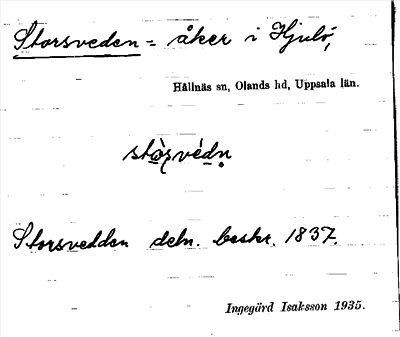 Storsveden = åker i Hjulö,
Hållnäs sn, Olands hd, Uppsala län.
stòṣvédṇ
Storsvedden deln. beskr. 1837.
Ingegärd Isaksson 1935.